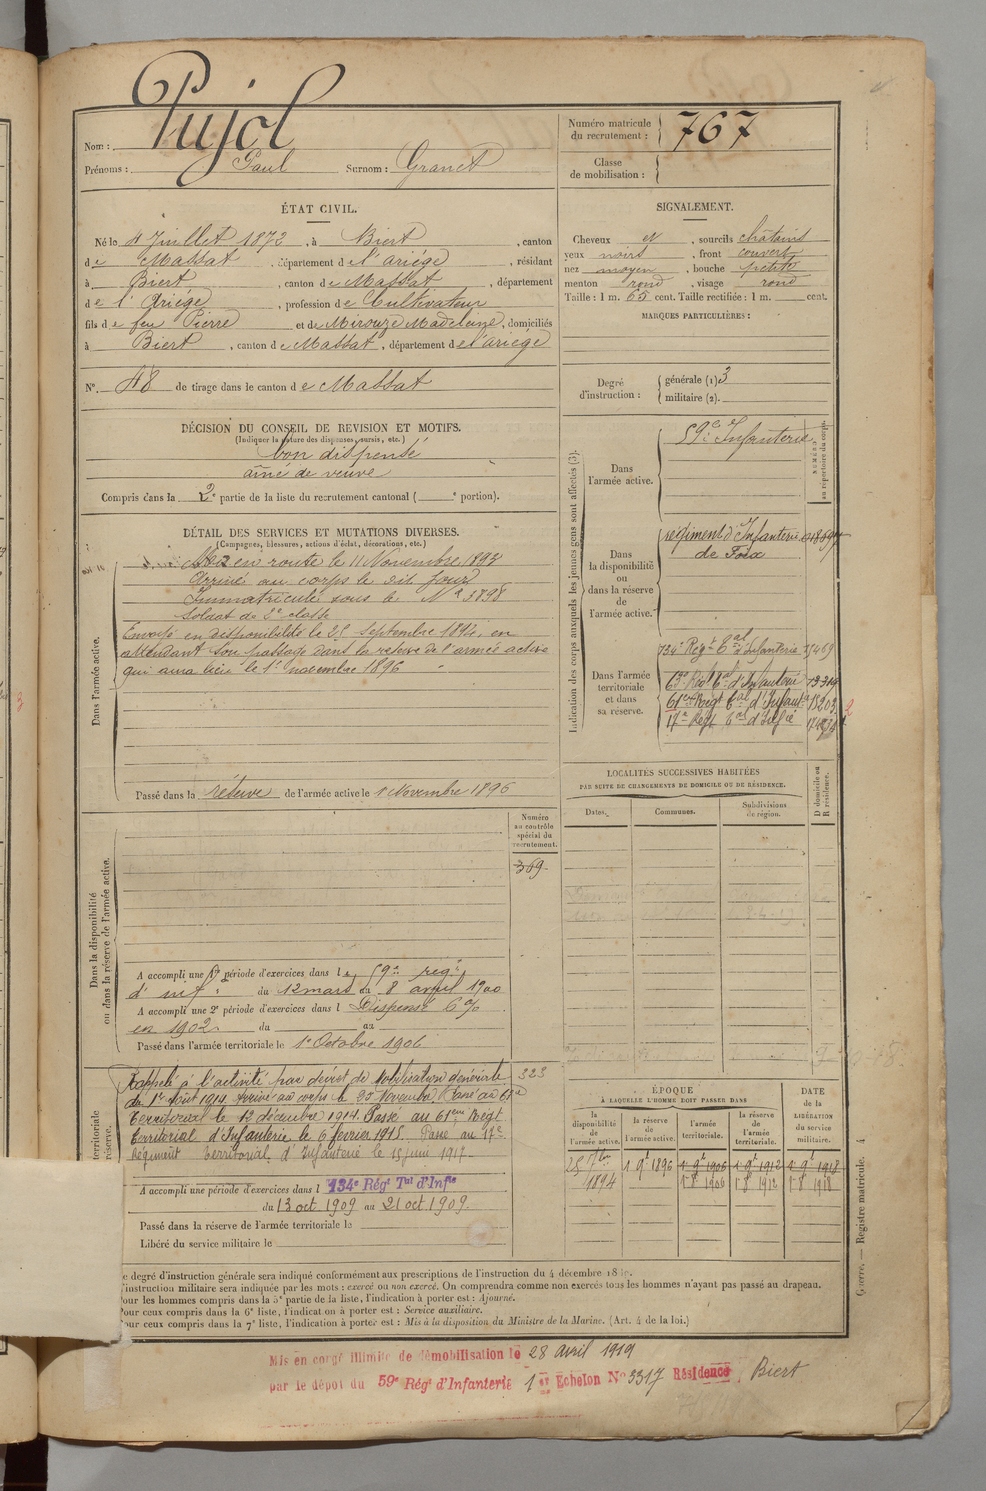 Nom : Pujol
Prénoms : Paul Surnom : Granet
Numéro matricule du recrutement : 767
Classe de mobilisation :
ÉTAT CIVIL.
Né le 4 Juillet 1872, à Biert, canton
de Massat, département de l'ariège, résidant
à Biert, canton de Massat, département
de l'Ariège, profession de Cultivateur
fils de feu Pierre et de Mirouze Madeleine, domiciliés
à Biert, canton de Massat, département de l'ariège
N° 48 de tirage dans le canton de Massat
SIGNALEMENT.
Cheveux et, sourcils châtains
yeux noirs, front couvert
nez moyen, bouche petite
menton rond, visage rond
Taille : 1 m. 65 cent. Taille rectifiée : 1 m. cent.
MARQUES PARTICULIÈRES :
Degré d'instruction : générale (1). 3
militaire (2).
DÉCISION DU CONSEIL DE REVISION ET MOTIFS.
(Indiquer la nature des dispenses, sursis, etc.)
bon dispensé
aîné de veuve
Compris dans la 2e partie de la liste du recrutement cantonal ( e portion).
DÉTAIL DES SERVICES ET MUTATIONS DIVERSES.
(Campagnes, blessures, actions d'éclat, décorations, etc.)
Dans l'armée active.
Mis en route le 11 Novembre 1893
Arrivé au corps le dit jour
Immatriculé sous le N° 3798
Soldat de 2e classe
Envoyé en disponibilité le 25 Septembre 1894, en
attendant son passage dans la réserve de l'armée active
qui aura lieu le 1er novembre 1896
Passé dans la réserve de l'armée active le 1 Novembre 1896
Indication des corps auxquels les jeunes gens sont affectés (3).
NUMÉRO au répertoire du corps.
Dans l'armée active.
59e Infanterie
Dans la disponibilité ou dans la réserve de l'armée active.
régiment d'Infanterie
de Foix
Dans l'armée territoriale et dans sa réserve.
134e Régt Tal d'Infanterie
63e Régt Tal d'Infanterie
61e Régt Tal d'Infanterie
17e Régt Tal d'Infie
LOCALITÉS SUCCESSIVES HABITÉES
PAR SUITE DE CHANGEMENTS DE DOMICILE OU DE RÉSIDENCE.
Dates. Communes. Subdivisions de région. D domicile ou R résidence.
Numéro au contrôle spécial du recrutement.
369
Dans la disponibilité ou dans la réserve de l'armée active.
A accompli une 1e période d'exercices dans le 59e reg.
d'inf. du 12 mars au 8 avril 1900
A accompli une 2e période d'exercices dans l Dispensé
en 1902 du au
Passé dans l'armée territoriale le 1er Octobre 1906
323
Rappelé à l'activité par décret de Mobilisation Générale
du 1er Août 1914. Arrivé au corps le 20 Novembre. Passé au 63e
territorial le 12 décembre 1914. Passé au 61eme Régt
territorial d'Infanterie le 6 février 1915. Passé au 17e
Régiment territorial d'Infanterie le 15 juin 1917
territoriale
réserve.
A accompli une période d'exercices dans l 134e Régt Tal d'Infie
du 13 oct 1909 au 21 oct 1909.
Passé dans la réserve de l'armée territoriale le
Libéré du service militaire le
ÉPOQUE
À LAQUELLE L'HOMME DOIT PASSER DANS
la disponibilité de l'armée active. la réserve de l'armée active. l'armée territoriale. la réserve de l'armée territoriale.
DATE de la LIBÉRATION du service militaire.
25 7bre 1894 1 9e 1896 1 9e 1906 1 9e 1912 1 9e 1918
1 8 1906 1 8 1912 1 8 1918
Guerre. — Registre matricule. 4
e degré d'instruction générale sera indiqué conformément aux prescriptions de l'instruction du 4 décembre
'instruction militaire sera indiquée par les mots : exercé ou non exercé. On comprendra comme non exercés tous les hommes n'ayant pas passé au drapeau.
our les hommes compris dans la 5e partie de la liste, l'indication à porter est : Ajourné.
our ceux compris dans la 6e liste, l'indication à porter est : Service auxiliaire.
our ceux compris dans la 7e liste, l'indication à porter est : Mis à la disposition du Ministre de la Marine. (Art. 4 de la loi.)
Mis en congé illimité de démobilisation le 28 avril 1919
par le dépôt du 59e Régt d'Infanterie 1er Echelon N° 3317 Résidence Biert